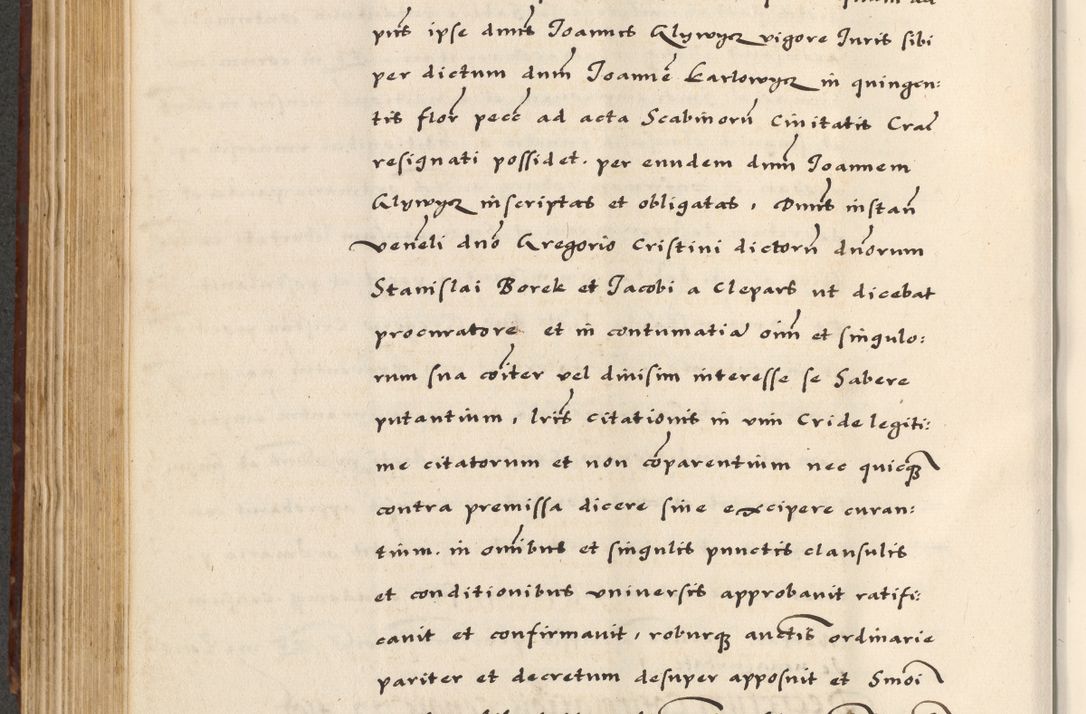 pñs ipse dnus Joannes Glywycz vigore Juris sibi
per dictum dnm̃ Joannẽ Karlowycz in quingen:
tis flor̃ pecc̃ ad acta Scabinorũ Ciuitatis Crac̃
resignati possidet. per eundem dnm̃ Joannem
Glywycz inscriptas et obligatas, Dnus instañ
veneli dño Gregorio Cristini dictorũ dñorum
Stanislai Borek et Jacobi a Clepars ut dicebat
procuratore et in contumatia oĩm et singulo:
rum sua cõiter vel diuisim interesse se habere
putantium, lrĩs citationis in vim Cride legiti:
me citatorum et non cõparentium nec quicq̃
contra premissa dicere siue excipere curan:
tium. in omĩbus et singulis punctis clausulis
et conditionibus vniuersis approbauit ratifi:
cauit et confirmauit, roburq̃ auctis̃ ordinarie
pariter et decretum desuper apposuit et Smoĩ